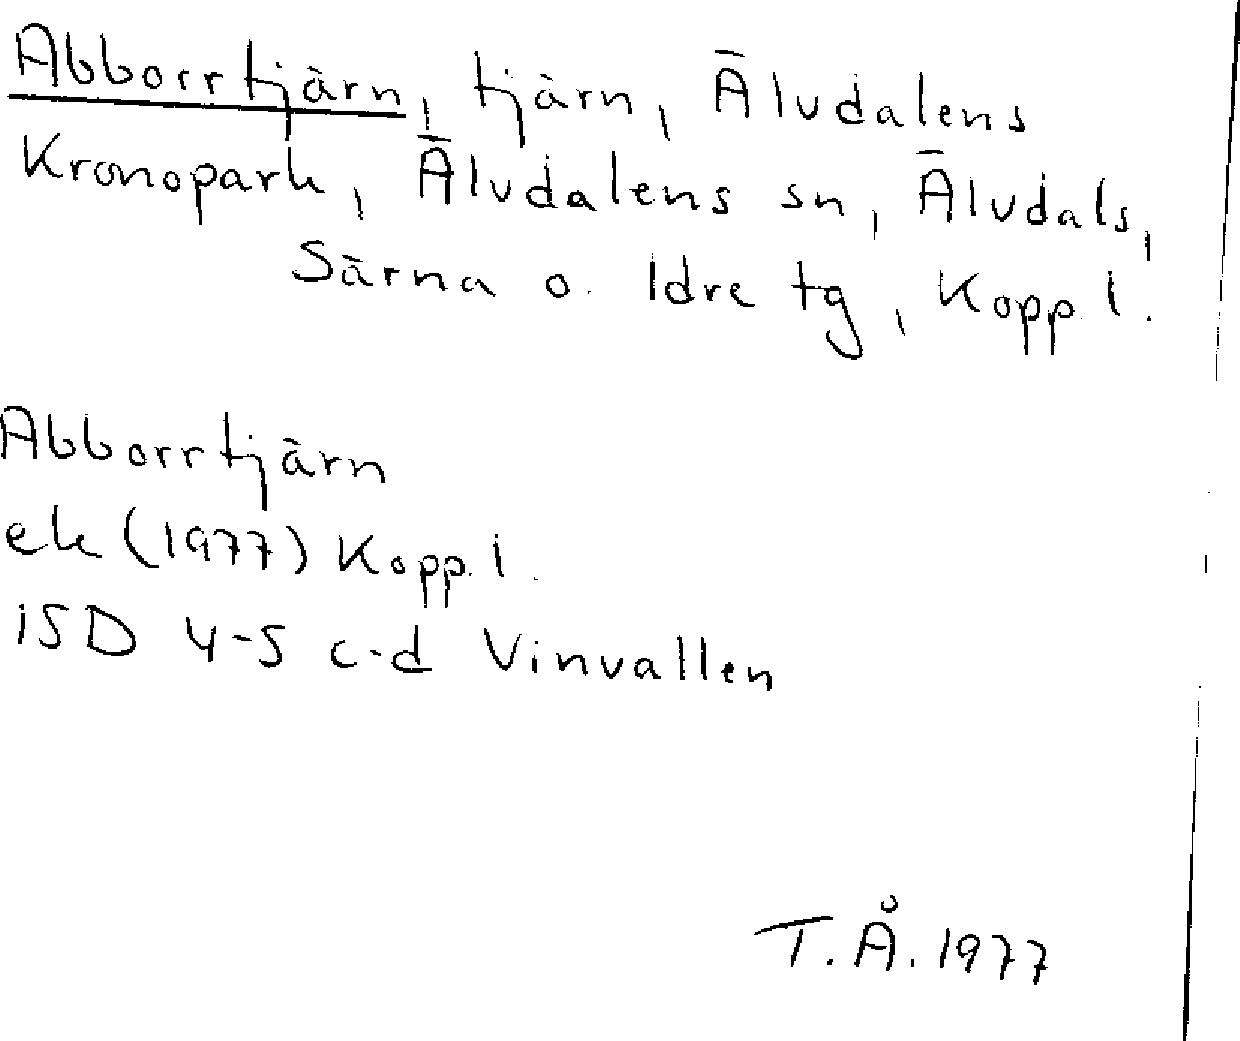 Abborrtjärn, tjärn, Älvdalens
Kronopark, Älvdalens sn, Älvdals,
Särna o. Idre tg, Kopp l.
Abborrtjärn
ek (1977) Kopp. l.
15D 4-5 c-d Vinvallen
T.Å. 1977